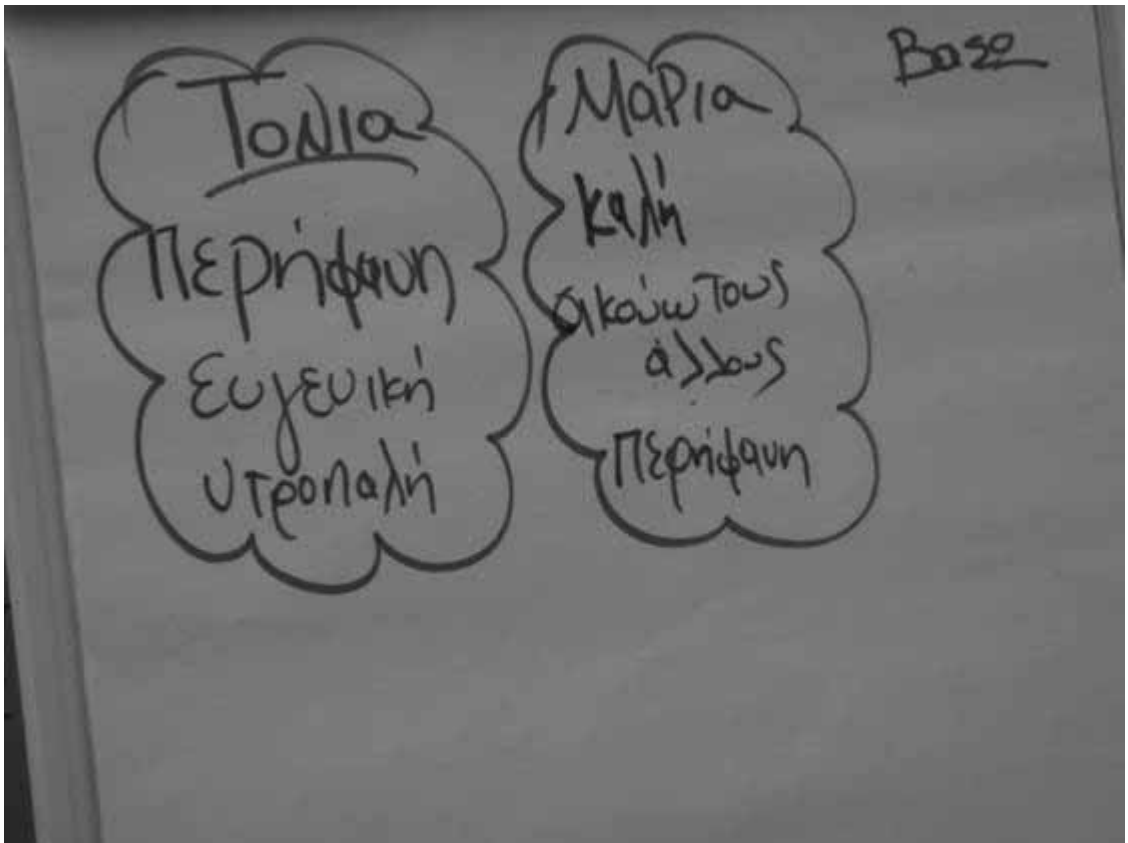 Τονια
Περήφανη
Ευγενική
ντροπαλή
Μαρια
καλή
ακούω τους
άλλους
Περήφανη
Base